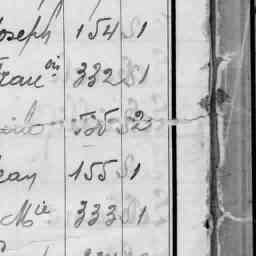 Joseph 154 S1
Fran.ois 332 S1
535 S2
Jean 155 S1
Mie 333 S1